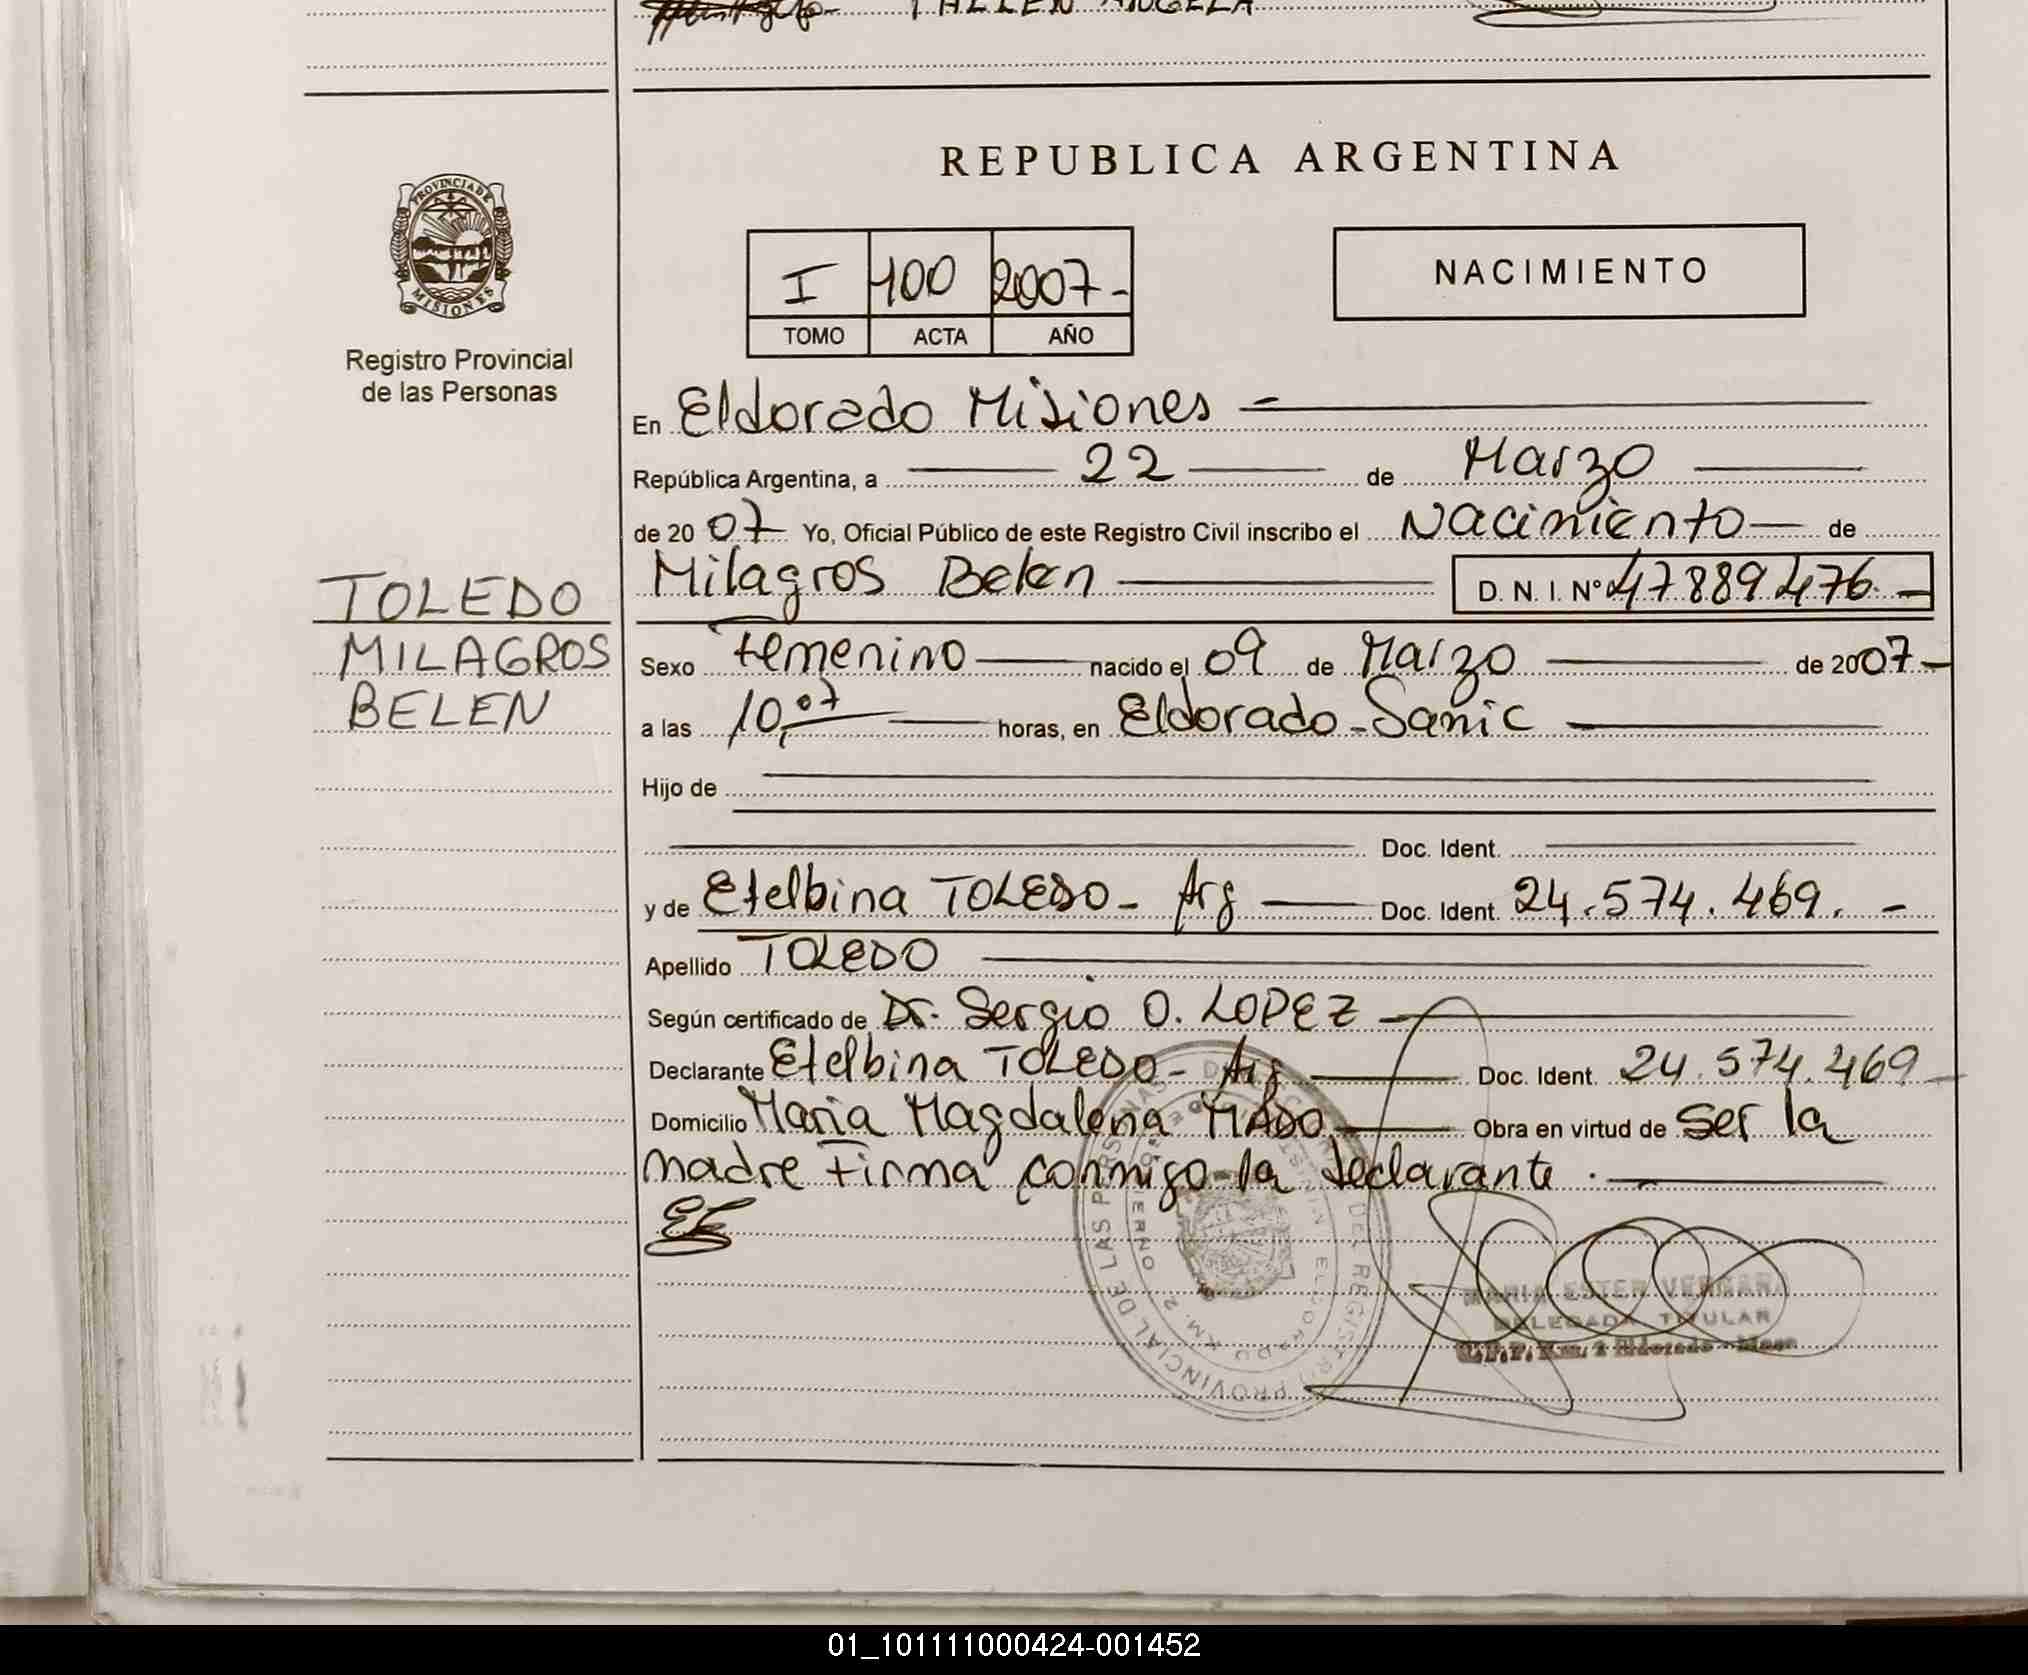 FALLEN ANGELA
REPUBLICA ARGENTINA
PROVINCIA DE MISIONES
I 100 2007-
TOMO ACTA AÑO
NACIMIENTO
Registro Provincial
de las Personas
En Eldorado Misiones
República Argentina, a 22 de Marzo
de 2007 Yo, Oficial Público de este Registro Civil inscribo el Nacimiento de
Milagros Belen D. N. I. Nº 47889476.-
TOLEDO
MILAGROS
BELEN
Sexo Femenino nacido el 09 de Marzo de 2007-
a las 10,07 horas, en Eldorado-Samic
Hijo de
Doc. Ident.
y de Etelbina TOLEDO- Arg Doc. Ident. 24.574.469.-
Apellido TOLEDO
Según certificado de Dr. Sergio O. LOPEZ
Declarante Etelbina TOLEDO- Arg Doc. Ident. 24.574.469-
Domicilio Maria Magdalena MADO. Obra en virtud de Ser la
madre Firma conmigo la declarante.
MARIA ESTER VERGARA
DELEGADA TITULAR
01_101111000424-001452